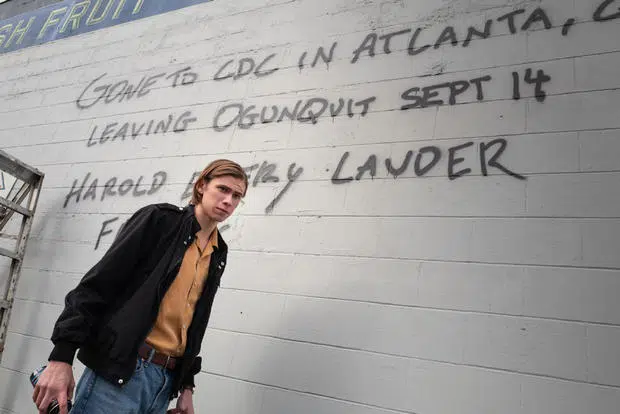 SH FRUIT
GONE TO CDC IN ATLANTA,
LEAVING OGUNQUIT SEPT 14
HAROLD LAUDER